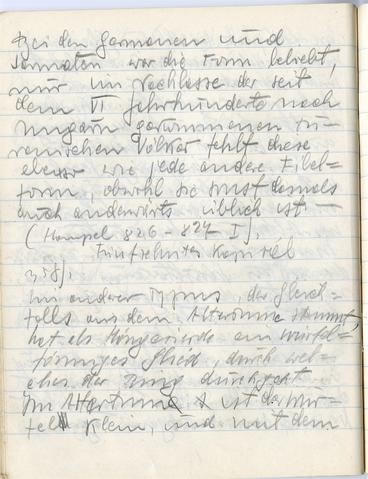 Bei den Germanen und
Sarmaten war die Form beliebt,
nur im Nachlasse der seit
dem VI Jahrhunderte nach
Ungarn gekommenen tu-
ranischen Völker fehlt diese
ebenso wie jede andere Fibel=
form, obwohl sie sonst damals
auch anderwärts üblich ist —
(Hampel 826 - 827 I).
Fünfzehntes Kapitel
358).
Ein anderer Typus, der gleich=
falls aus dem Altertume stammt,
hat als Hängezierde ein würfel=
förmiges Glied, durch wel-
ches der Ring durchgeht
Im Altertum ist der Wür-
fel klein, und mit dem